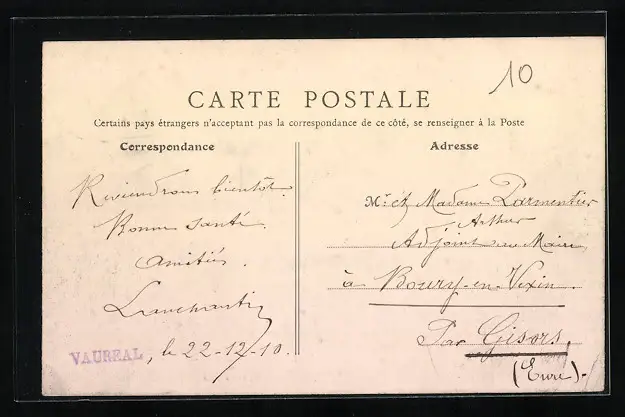 10
CARTE POSTALE
Certains pays étrangers n'acceptant pas la correspondance de ce côté, se renseigner à la Poste
Correspondance
Reviendrons bientôt.
Bonne santé.
Amitiés.
VAUREAL, le 22-12-10.
Adresse
Mr. et Madame Parmentier
Arthur
Adjoint au Maire
à Boury-en-Vexin.
Par Gisors,
(Eure).